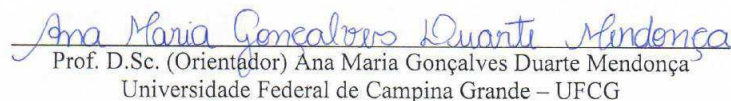 Ana Maria Gonçalves Duarte Mendonça
Prof. D.Sc. (Orientador) Ana Maria Gonçalves Duarte Mendonça
Universidade Federal de Campina Grande – UFCG